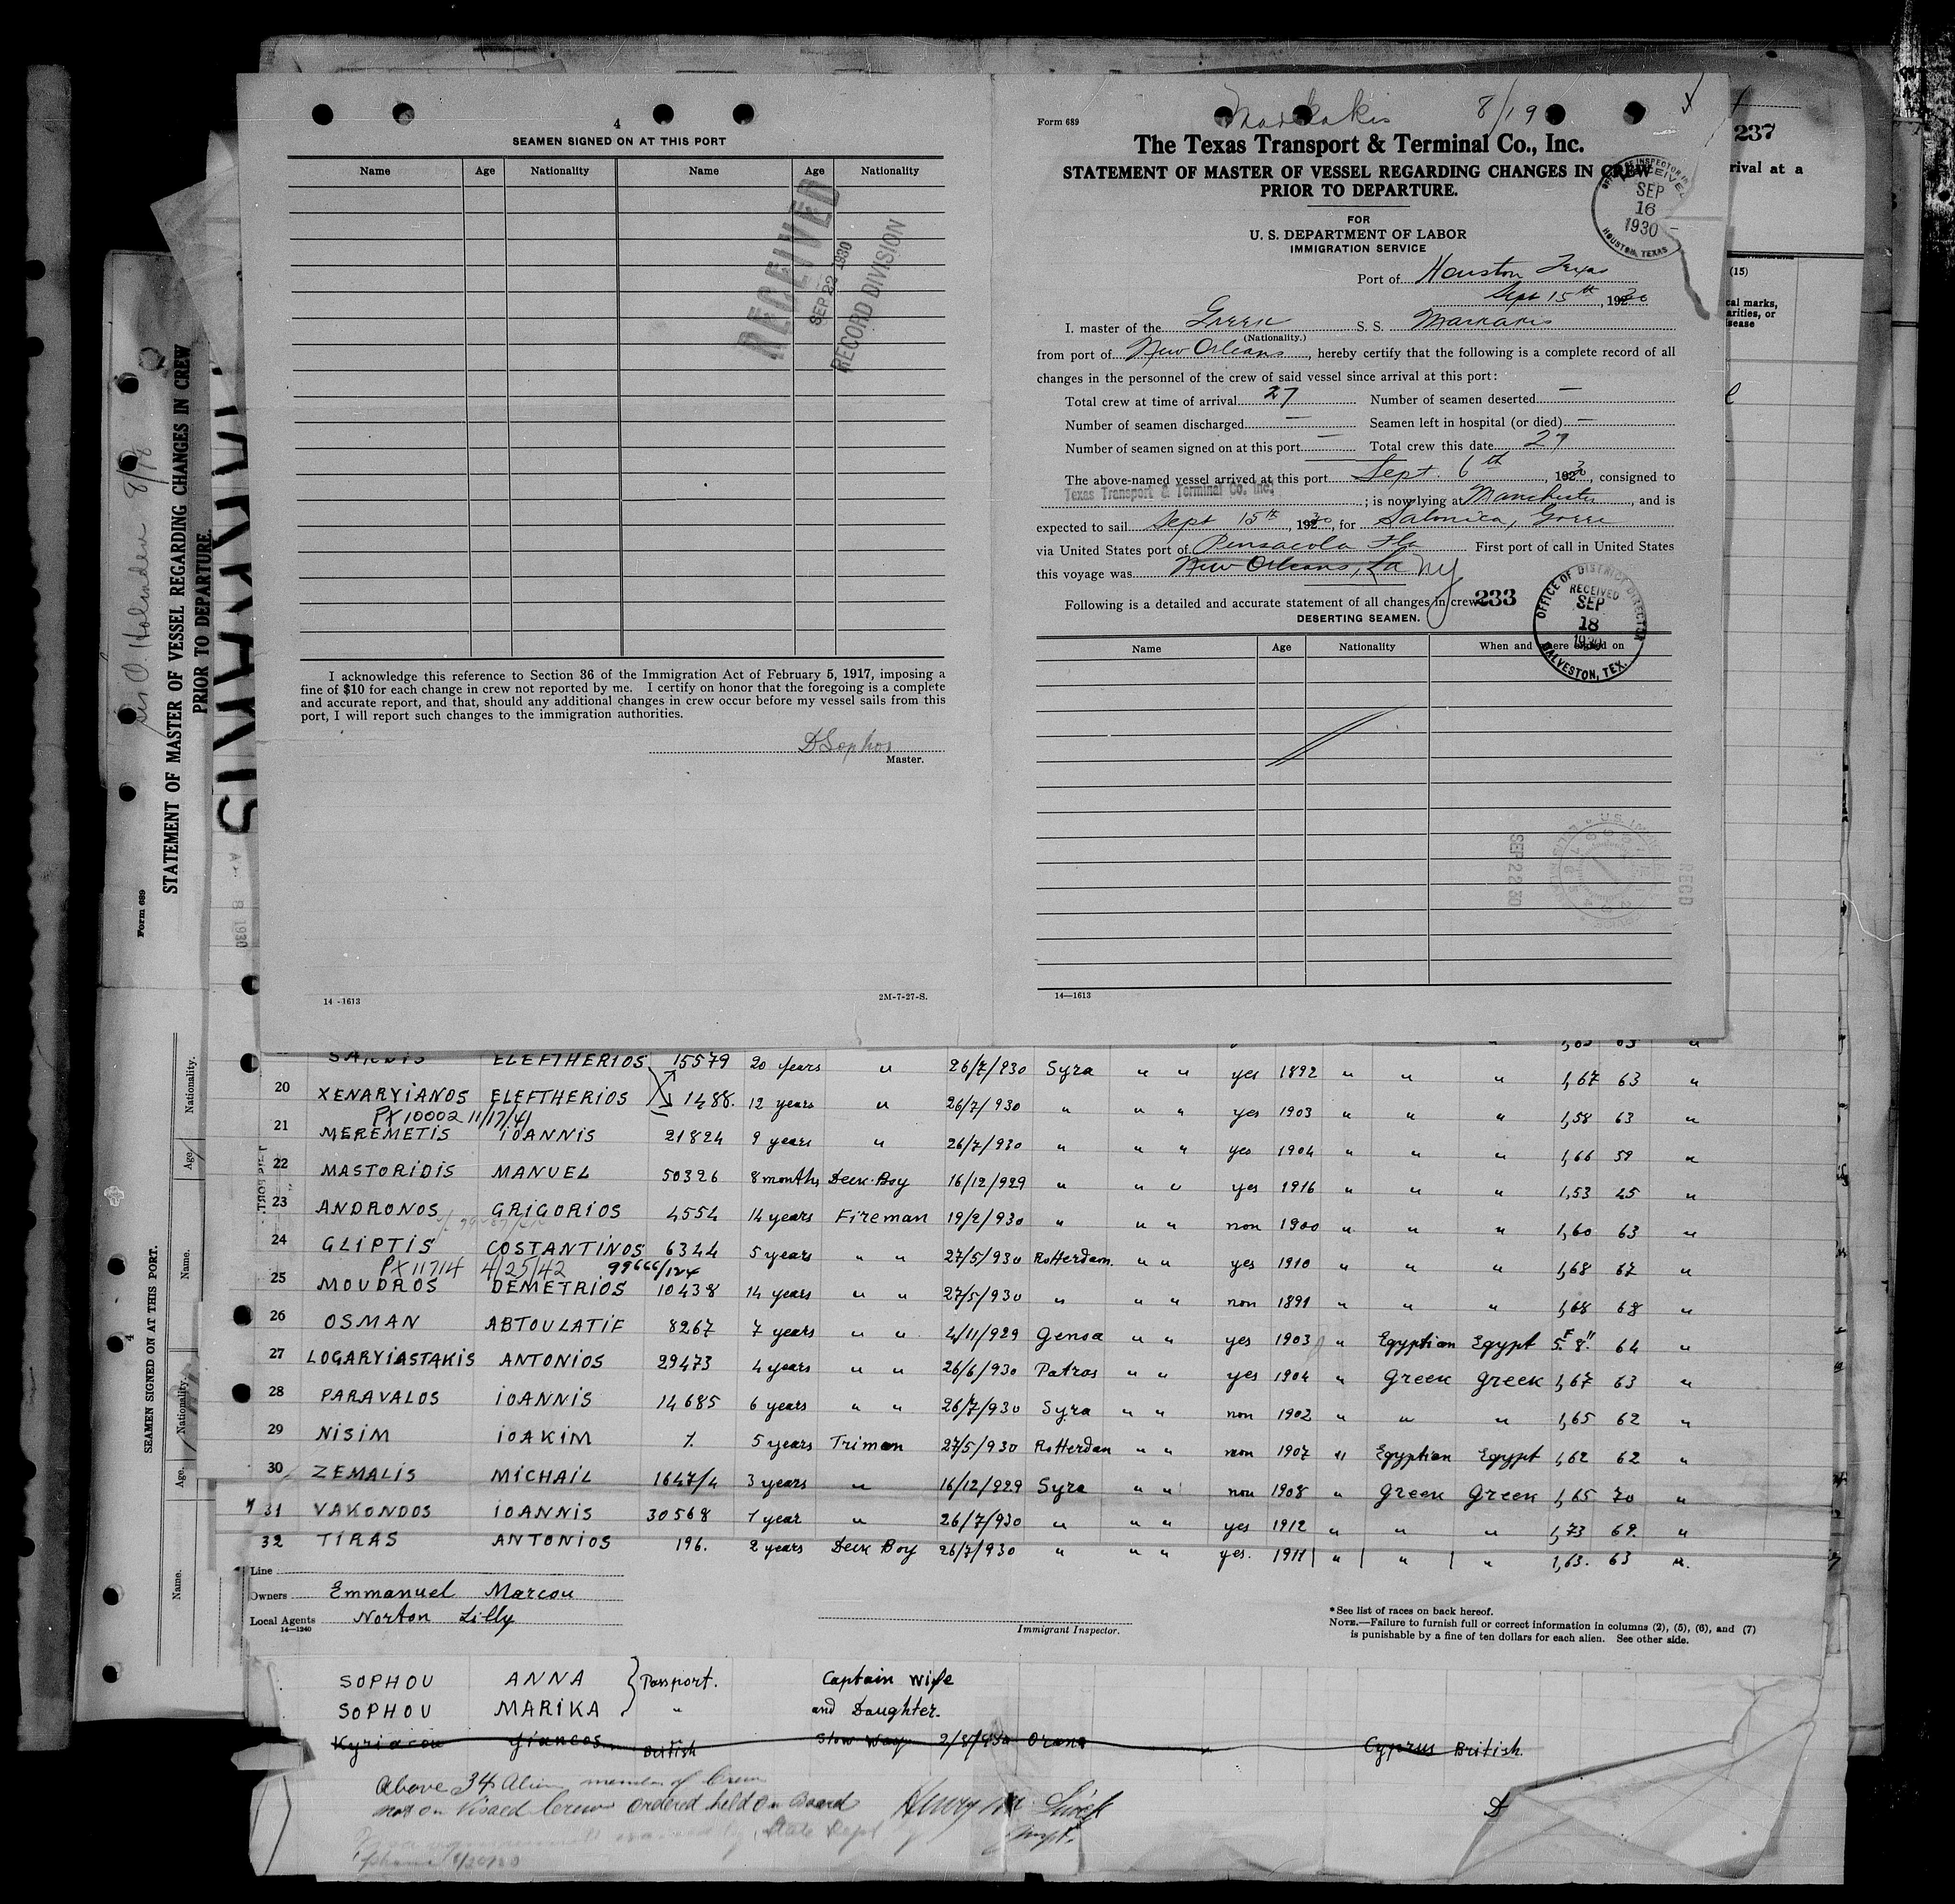 4
SEAMEN SIGNED ON AT THIS PORT
Name Age Nationality Name Age Nationality
RECEIVED
SEP 22 1930
RECORD DIVISION
I acknowledge this reference to Section 36 of the Immigration Act of February 5, 1917, imposing a
fine of $10 for each change in crew not reported by me. I certify on honor that the foregoing is a complete
and accurate report, and that, should any additional changes in crew occur before my vessel sails from this
port, I will report such changes to the immigration authorities.
D Sophos
Master.
14-1613 2M-7-27-S.
Form 689 Markakis 8/19
The Texas Transport & Terminal Co., Inc.
STATEMENT OF MASTER OF VESSEL REGARDING CHANGES IN CREW
PRIOR TO DEPARTURE.
FOR
U. S. DEPARTMENT OF LABOR
IMMIGRATION SERVICE
RECEIVED
SEP
16
1930
HOUSTON, TEXAS
Port of Houston Texas
Sept 15th, 1930
I. master of the Greek S. S. Markakis
(Nationality.)
from port of New Orleans, hereby certify that the following is a complete record of all
changes in the personnel of the crew of said vessel since arrival at this port:
Total crew at time of arrival 27 Number of seamen deserted —
Number of seamen discharged — Seamen left in hospital (or died) —
Number of seamen signed on at this port — Total crew this date 27
The above-named vessel arrived at this port Sept. 6th, 1930, consigned to
Texas Transport & Terminal Co. Inc.; is now lying at Manchester, and is
expected to sail Sept 15th, 1930, for Salonica, Greece
via United States port of Pensacola Fla First port of call in United States
this voyage was New Orleans, La NY
Following is a detailed and accurate statement of all changes in crew 233
DESERTING SEAMEN.
OFFICE OF DISTRICT DIRECTOR
RECEIVED
SEP
18
1930
GALVESTON, TEX.
Name Age Nationality When and where signed on
SEP 22 30
RECD
14—1613
237
rival at a
(15)
cal marks,
arities, or
isease
ELEFTHERIOS 15579 20 years " 26/7/930 Syra " " yes 1892 " " " 1,67 63 "
20 XENARYIANOS ELEFTHERIOS 1488. 12 years " 26/7/930 " " " yes 1903 " " " 1,58 63 "
PX 10002 11/17/41
21 MEREMETIS IOANNIS 21824 9 years " 26/7/930 " " " yes 1904 " " " 1,66 59 "
22 MASTORIDIS MANUEL 50326 8 months Deck Boy 16/12/929 " " " yes 1916 " " " 1,53 45 "
23 ANDRONOS GRIGORIOS 4554 14 years Fireman 19/2/930 " " " non 1900 " " " 1,60 63 "
24 GLIPTIS COSTANTINOS 6344 5 years " " 27/5/930 Rotterdam " " yes 1910 " " " 1,68 67 "
PX 11714 4/25/42 99666/124
25 MOUDROS DEMETRIOS 10438 14 years " " 27/5/930 " " " non 1891 " " " 1,68 68 "
26 OSMAN ABTOULATIF 8267 7 years " " 4/11/929 Genoa " " yes 1903 " Egyptian Egypt 5F 8" 64 "
27 LOGARYIASTAKIS ANTONIOS 29473 4 years " " 26/6/930 Patras " " yes 1904 " Greek Greek 1,67 63 "
28 PARAVALOS IOANNIS 14685 6 years " " 26/7/930 Syra " " non 1902 " " " 1,65 62 "
29 NISIM IOAKIM 5 years Triman 27/5/930 Rotterdam " " non 1907 " Egyptian Egypt 1,62 62 "
30 ZEMALIS MICHAIL 1647/4 3 years " 16/12/929 Syra " " non 1908 " Greek Greek 1,65 70 "
31 VAKONDOS IOANNIS 30568 1 year " 26/7/930 " " " yes 1912 " " " 1,73 69. "
32 TIRAS ANTONIOS 196. 2 years Deck Boy 26/7/930 " " " yes. 1911 " " " 1,63. 63 "
Line
Owners Emmanuel Marcou
Local Agents Norton Lilly
14—1240
Immigrant Inspector.
*See list of races on back hereof.
NOTE.—Failure to furnish full or correct information in columns (2), (5), (6), and (7)
is punishable by a fine of ten dollars for each alien. See other side.
SOPHOU ANNA Passport. Captain Wife
SOPHOU MARIKA " and Daughter.
Kyriacou Giancos British Stow Way 2/8/930 Orano Cyprus British
Above 34 Alien members of Crew
not on Visaed Crew ordered held on Board
State Dept
STATEMENT OF MASTER OF VESSEL REGARDING CHANGES IN CREW
PRIOR TO DEPARTURE.
Form 689
4
SEAMEN SIGNED ON AT THIS PORT.
Name. Age. Nationality. Name. Age. Nationality.